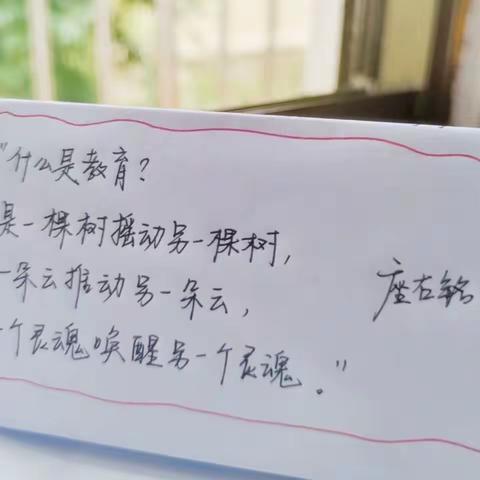 "什么是教育？
是一棵树摇动另一棵树，
一朵云推动另一朵云，
一个灵魂唤醒另一个灵魂。"
座右铭